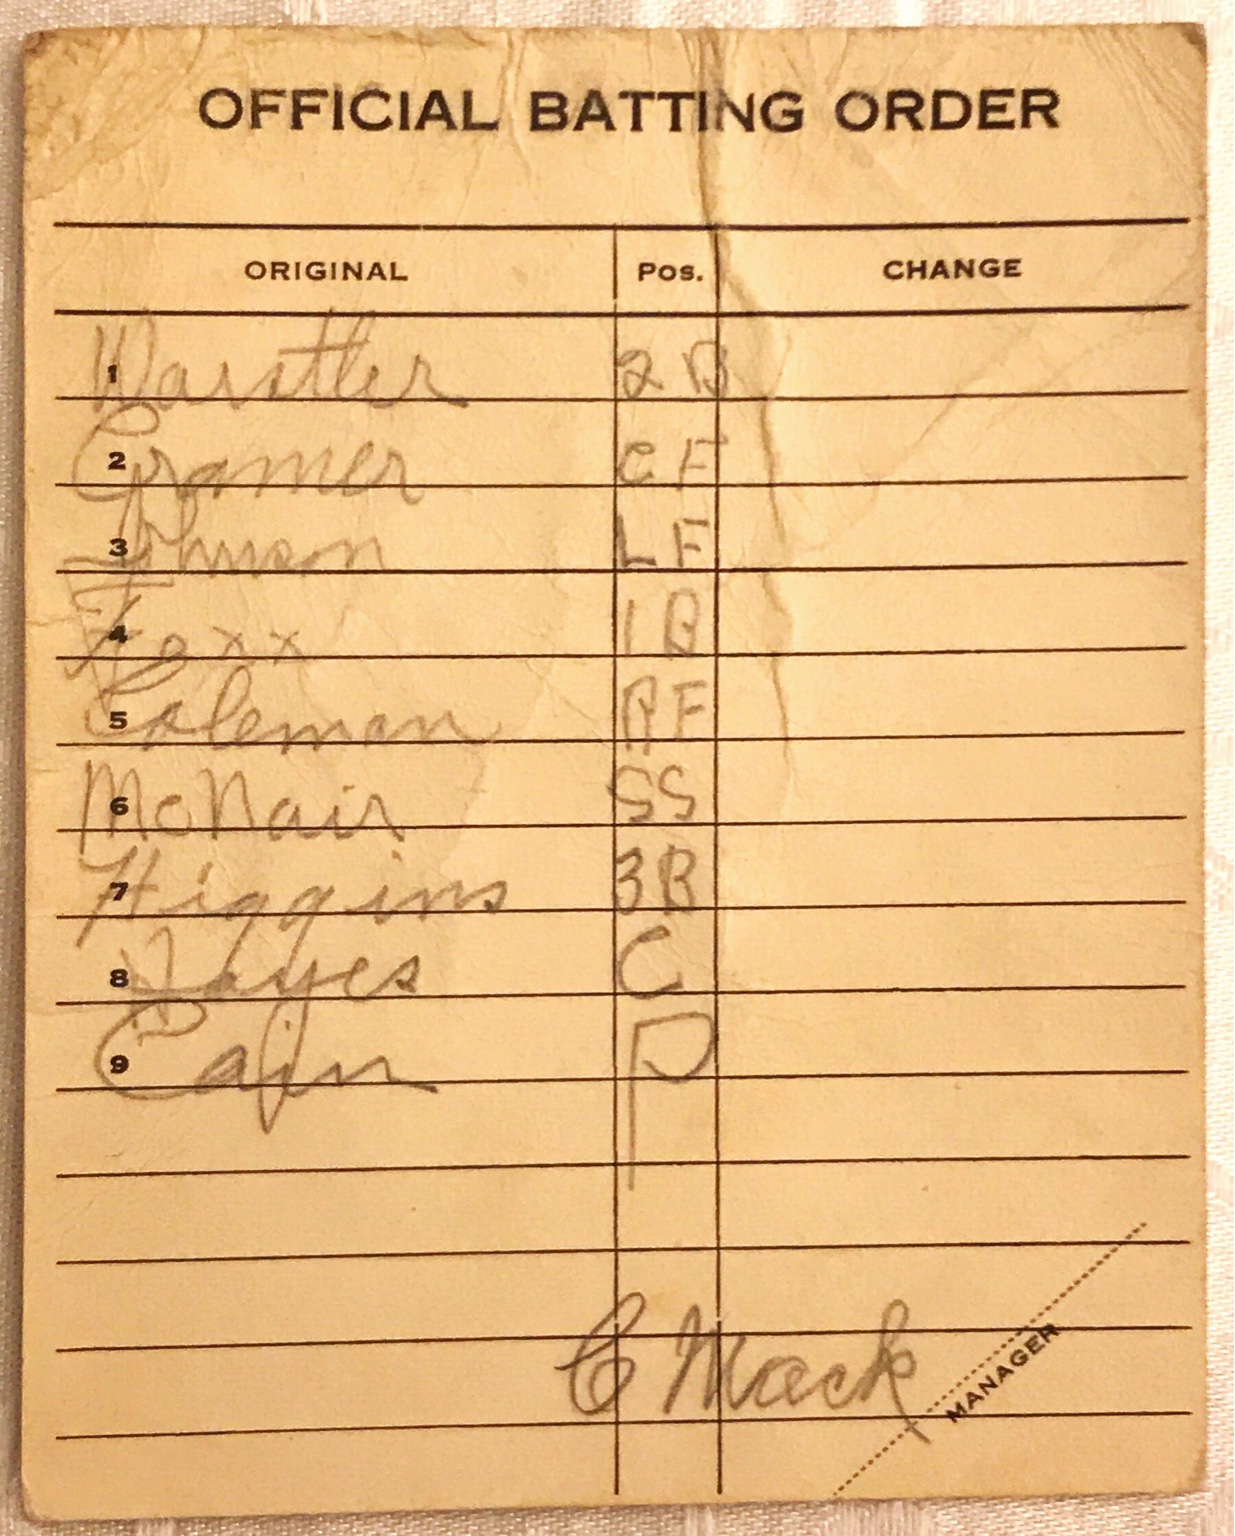 OFFICIAL BATTING ORDER
ORIGINAL Pos. CHANGE
1 Warstler 2 B
2 Cramer C F
3 Johnson L F
4 Foxx 1 B
5 Coleman R F
6 McNair SS
7 Higgins 3B
8 Hayes C
9 Cain P
C Mack
MANAGER